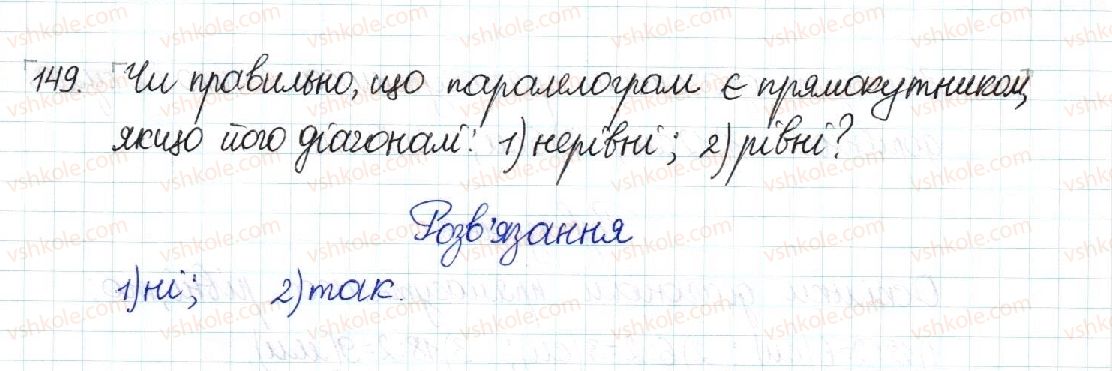 149. Чи правильно, що паралелограм є прямокутником,
якщо його діагоналі: 1) нерівні; 2) рівні?
Розв'язання
1) ні; 2) так.